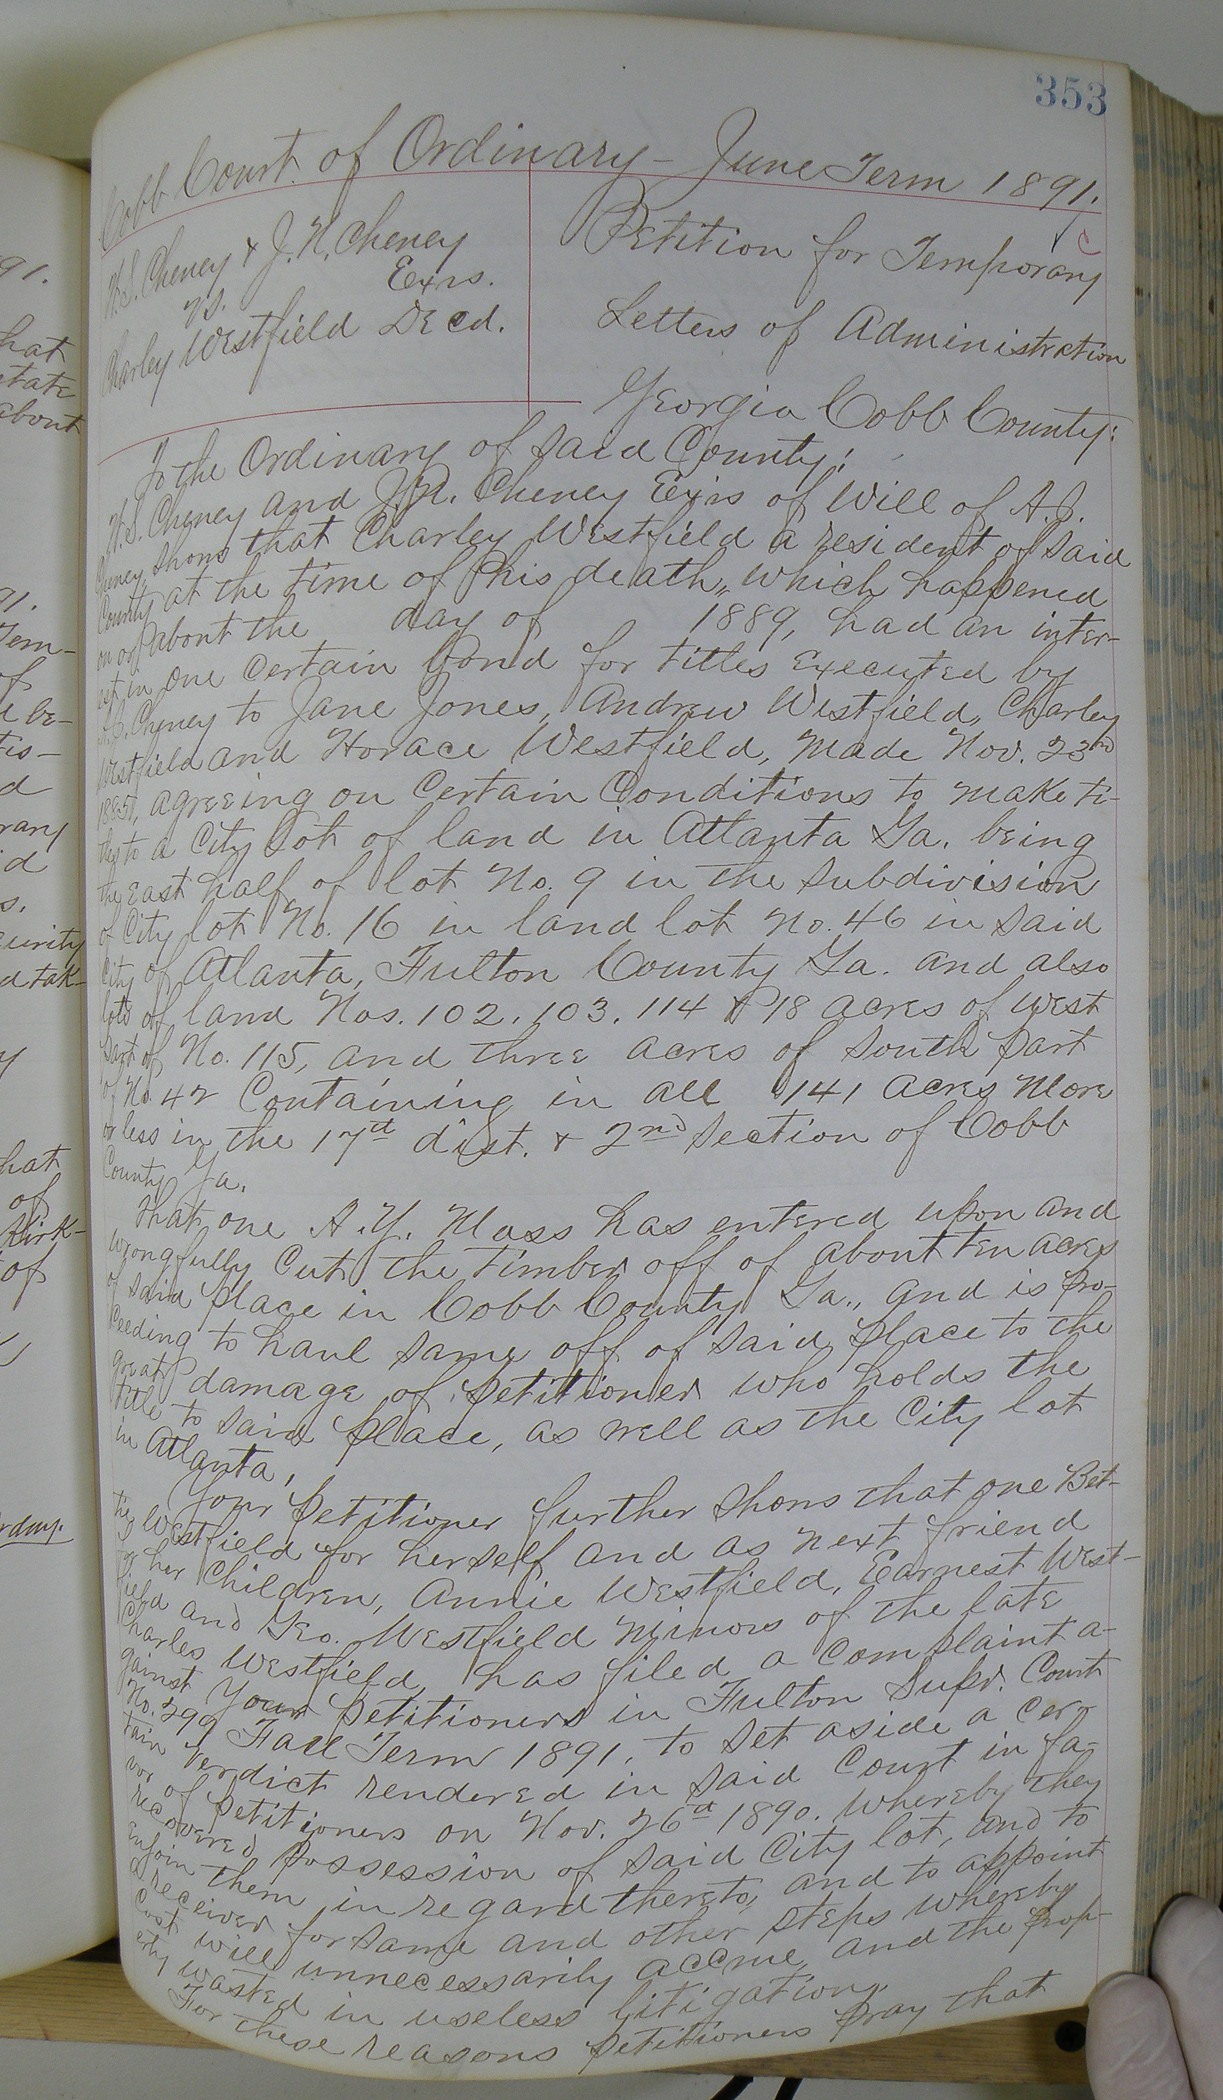 353
Cobb Court of Ordinary - June Term 1891.
W.S. Cheney & J.N. Cheney
Exrs.
vs.
Charley Westfield Decd.
Petition for Temporary
Letters of Administration
Georgia Cobb County:
To the Ordinary of said County:
W.S. Cheney and J.N. Cheney Exrs of Will of A.J.
Cheney, shows that Charley Westfield a resident of said
County at the time of his death, which happened
on or about the day of 1889, had an inter-
est in one certain bond for titles executed by
Cheney to Jane Jones, Andrew Westfield, Charley
Westfield and Horace Westfield, made Nov. 23rd
agreeing on certain Conditions to make ti-
tles to a City lot of land in Atlanta Ga. being
the east half of lot No. 9 in the subdivision
of City lot No. 16 in land lot No. 46 in said
City of Atlanta, Fulton County Ga. and also
lots of land Nos. 102. 103. 114 & 18 acres of west
part of No. 115, and three acres of south part
of No. 42 Containing in all 141 acres more
or less in the 17th dist. & 2nd section of Cobb
County Ga.
That one A.Y. Mass has entered upon and
wrongfully cut the timber off of about ten acres
of said place in Cobb County Ga., and is pro-
ceeding to haul same off of said place to the
great damage of petitioner who holds the
title to said place, as well as the City lot
in Atlanta,
Your petitioner further shows that one Bet-
tie Westfield for herself and as next friend
for her children, Annie Westfield, Earnest West-
field and Geo. Westfield minors of the late
Charles Westfield, has filed a complaint a-
gainst your petitioners in Fulton Supr. Court
No. 299 Fall Term 1891. to set aside a cer-
tain verdict rendered in said Court in fa-
vor of petitioners on Nov. 26th 1890. whereby they
recovered possession of said City lot, and to
enjoin them in regard thereto, and to appoint
a receiver for same and other steps whereby
cost will unnecessarily accrue, and the prop-
erty wasted in useless litigation.
For these reasons petitioners pray that
91.
hat
state
about
91.
Tem-
of
be-
tis-
d
rary
id
s.
curity
d tak-
y
hat
of
Kirk-
of